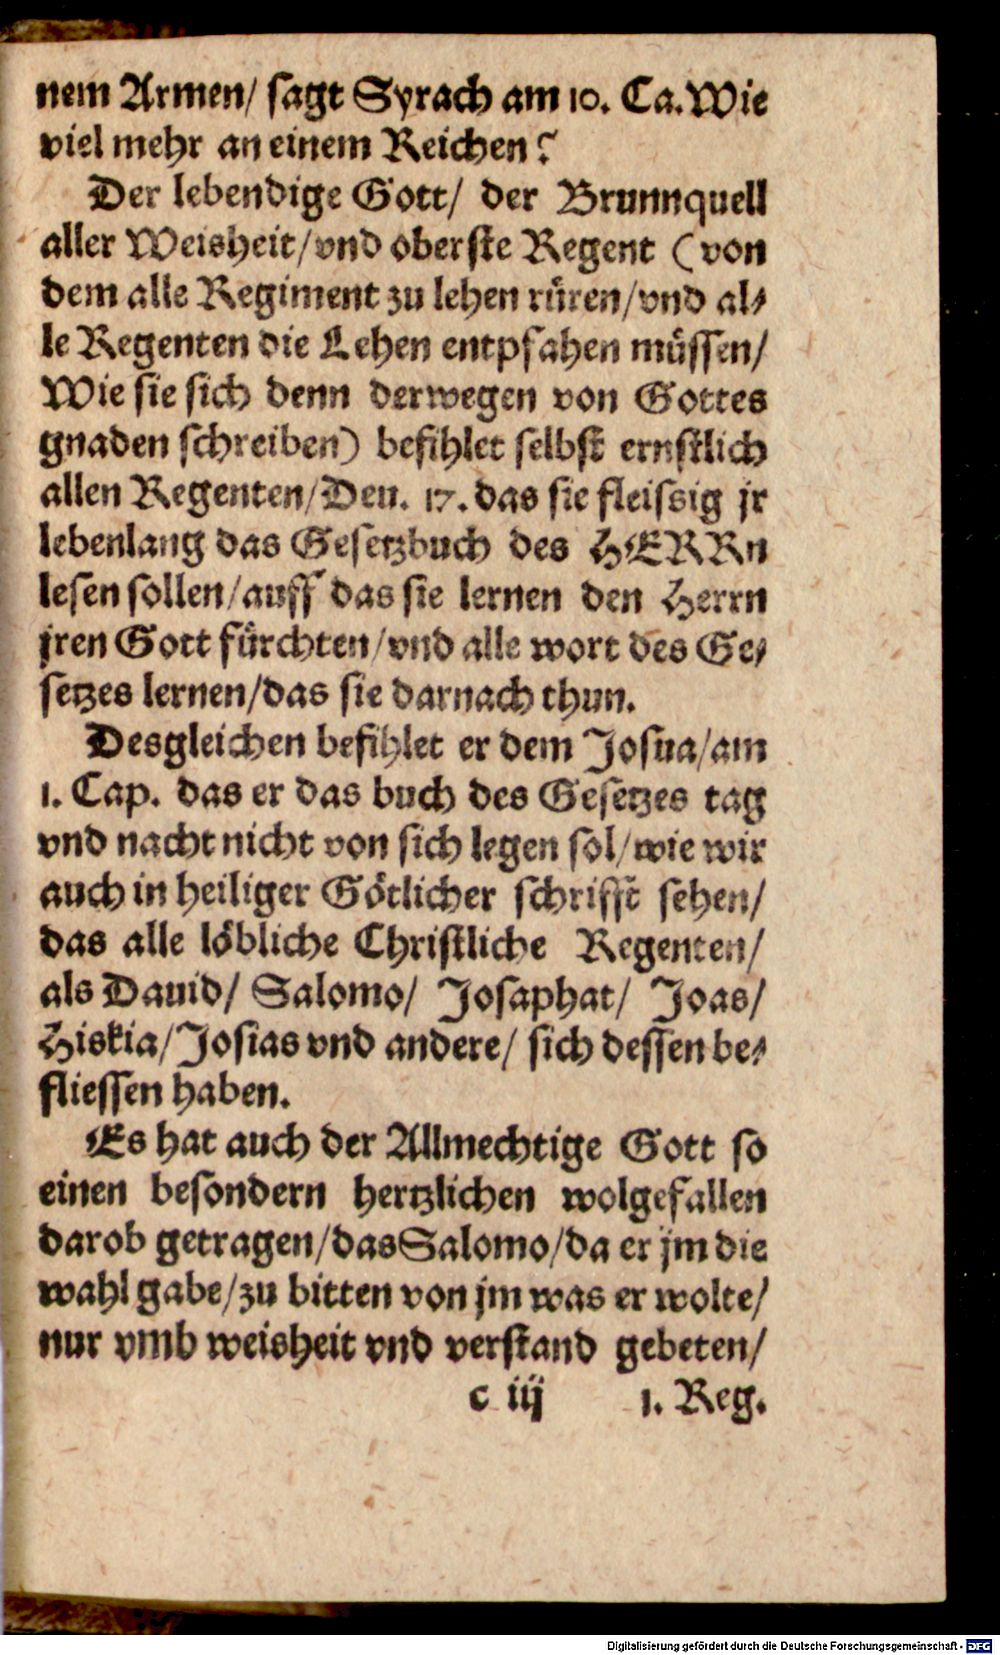 nem Armen/ sagt Syrach am 10. Ca. Wie
viel mehr an einem Reichen?
Der lebendige Gott/ der Brunnquell
aller Weisheit/vnd oberste Regent (von
dem alle Regiment zu lehen rüren/vnd al-
le Regenten die Lehen entpfahen müssen/
Wie sie sich denn derwegen von Gottes
gnaden schreiben) befihlet selbst ernstlich
allen Regenten/Deu. 17. das sie fleissig jr
lebenlang das Gesetzbuch des HERRn
lesen sollen/auff das sie lernen den Herrn
jren Gott fürchten/vnd alle wort des Ge-
setzes lernen/das sie darnach thun.
Desgleichen befihlet er dem Josua/am
1. Cap. das er das buch des Gesetzes tag
vnd nacht nicht von sich legen sol/wie wir
auch in heiliger Götlicher schrifft sehen/
das alle löbliche Christliche Regenten/
als Dauid/ Salomo/ Josaphat/ Joas/
Hiskia/Josias vnd andere/ sich dessen be-
fliessen haben.
Es hat auch der Allmechtige Gott so
einen besondern hertzlichen wolgefallen
darob getragen/das Salomo/da er jm die
wahl gabe/zu bitten von jm was er wolte/
nur vmb weisheit vnd verstand gebeten/
c iij 1. Reg.
Digitalisierung gefördert durch die Deutsche Forschungsgemeinschaft - DFG